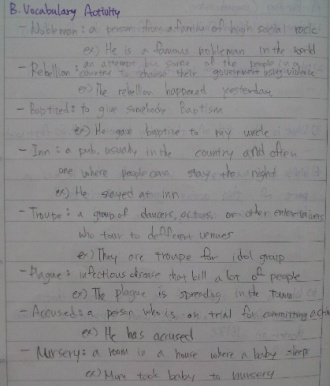 B. Vocabulary Activity
- Nobleman : a person from a family of high social rack
ex) He is a famous nobleman in the world
- Rebellion : an attempt by some of the people in a
country to change their government using violence
ex) The rebellion happened yesterday
- Baptized : to give somebody Baptism
ex) He gave baptize to my uncle
- Inn : a pub, usually in the country and often
one where people can stay the night
ex) He stayed at inn
- Troupe : a group of dancers, actors, or other entertainers
who tour to different venues
ex) They are troupe for idol group
- Plague : infectious disease that kill a lot of people
ex) The plague is spreading in the town
- Accused : a person who is on trial for committing
ex) He has accused
- Nursery : a room is a house where a baby sleeps
ex) Mom took baby to nursery